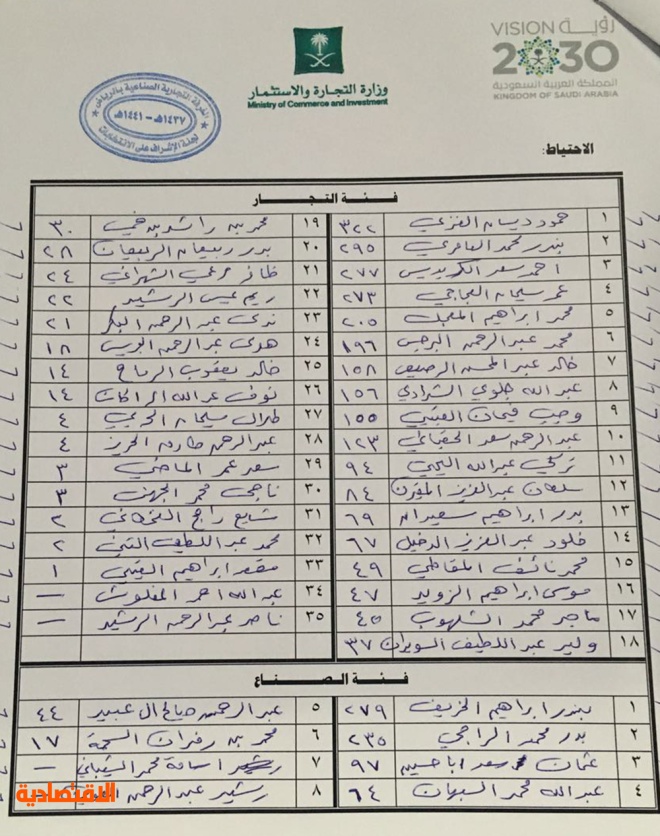 VISION رؤيــة
2030
المملكة العربية السعودية
KINGDOM OF SAUDI ARABIA
وزارة التجارة والاستثمار
Ministry of Commerce and Investment
الغرفة التجارية الصناعية بالرياض
١٤٣٧هـ - ١٤٤١هـ
لجنة الإشراف على الانتخابات
الاحتياط:
فـئـة التـجـار
١ حمود ديسان العنزي ٣٢٢ ١٩ محمد بن راشد بن ٣٠
٢ بندر محمد العامري ٢٩٥ ٢٠ بدر ربيعان الربيعان ٢٨
٣ احمد سعد الكريديس ٢٧٧ ٢١ ظافر مرعي الشهراني ٢٤
٤ عمر سليمان العجاجي ٢٧٣ ٢٢ ريم عيسى الرشيد ٢٢
٥ محمد ابراهيم ٢٠٥ ٢٣ ندى عبد الرحمن البكر ٢١
٦ محمد عبدالرحمن البرجس ١٩٦ ٢٤ هدى عبدالرحمن ١٨
٧ خالد عبد المحسن الرصيف ١٥٨ ٢٥ خالد يعقوب الرماح ١٤
٨ عبد الله جلوي الشرادي ١٥٦ ٢٦ نوف عبدالله ١٤
٩ فيحان العتيبي ١٥٥ ٢٧ طلال سليمان الحربي ٤
١٠ عبدالرحمن سعد الحقباني ١٢٣ ٢٨ عبدالرحمن ٤
١١ تركي عبدالله ٩٤ ٢٩ سعد عمر الماضي ٣
١٢ سلطان عبدالعزيز المقرن ٨٤ ٣٠ ناجي محمد الجهني ٣
١٣ بدر ابراهيم سعيدان ٦٩ ٣١ شايع راجح ٢
١٤ خلود عبد العزيز الدخيل ٦٧ ٣٢ محمد عبد اللطيف ٢
١٥ محمد نائف المقاطي ٤٩ ٣٣ ابراهيم العتيبي ١
١٦ موسى ابراهيم الزويد ٤٧ ٣٤ عبدالله احمد المغلوث —
١٧ ماجد محمد الشلهوب ٤٥ ٣٥ ناصر عبدالرحمن الرشيد —
١٨ وليد عبد اللطيف السويدان ٣٧
فـئـة الـصـنـاع
١ بندر ابراهيم الخريف ٢٧٩ ٥ عبدالرحمن صالح ال عبيد ٤٤
٢ بدر محمد الراجحي ٢٣٥ ٦ محمد بن ١٧
٣ عثمان سعد اباحسين ٩٧ ٧ اسامة محمد —
٤ عبدالله محمد السبهان ٦٤ ٨ رشيد عبدالرحمن
الاقتصادية